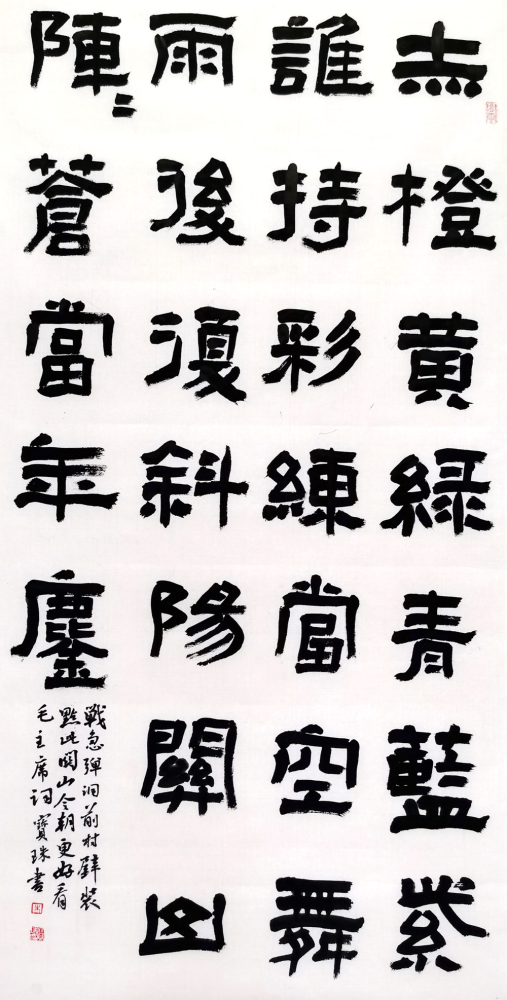 赤橙黄緑青藍紫
誰持彩練當空舞
雨後復斜陽關山
陣〻蒼當年鏖
戰急彈洞前村壁裝
點此関山今朝更好看
毛主席詞寶珠書